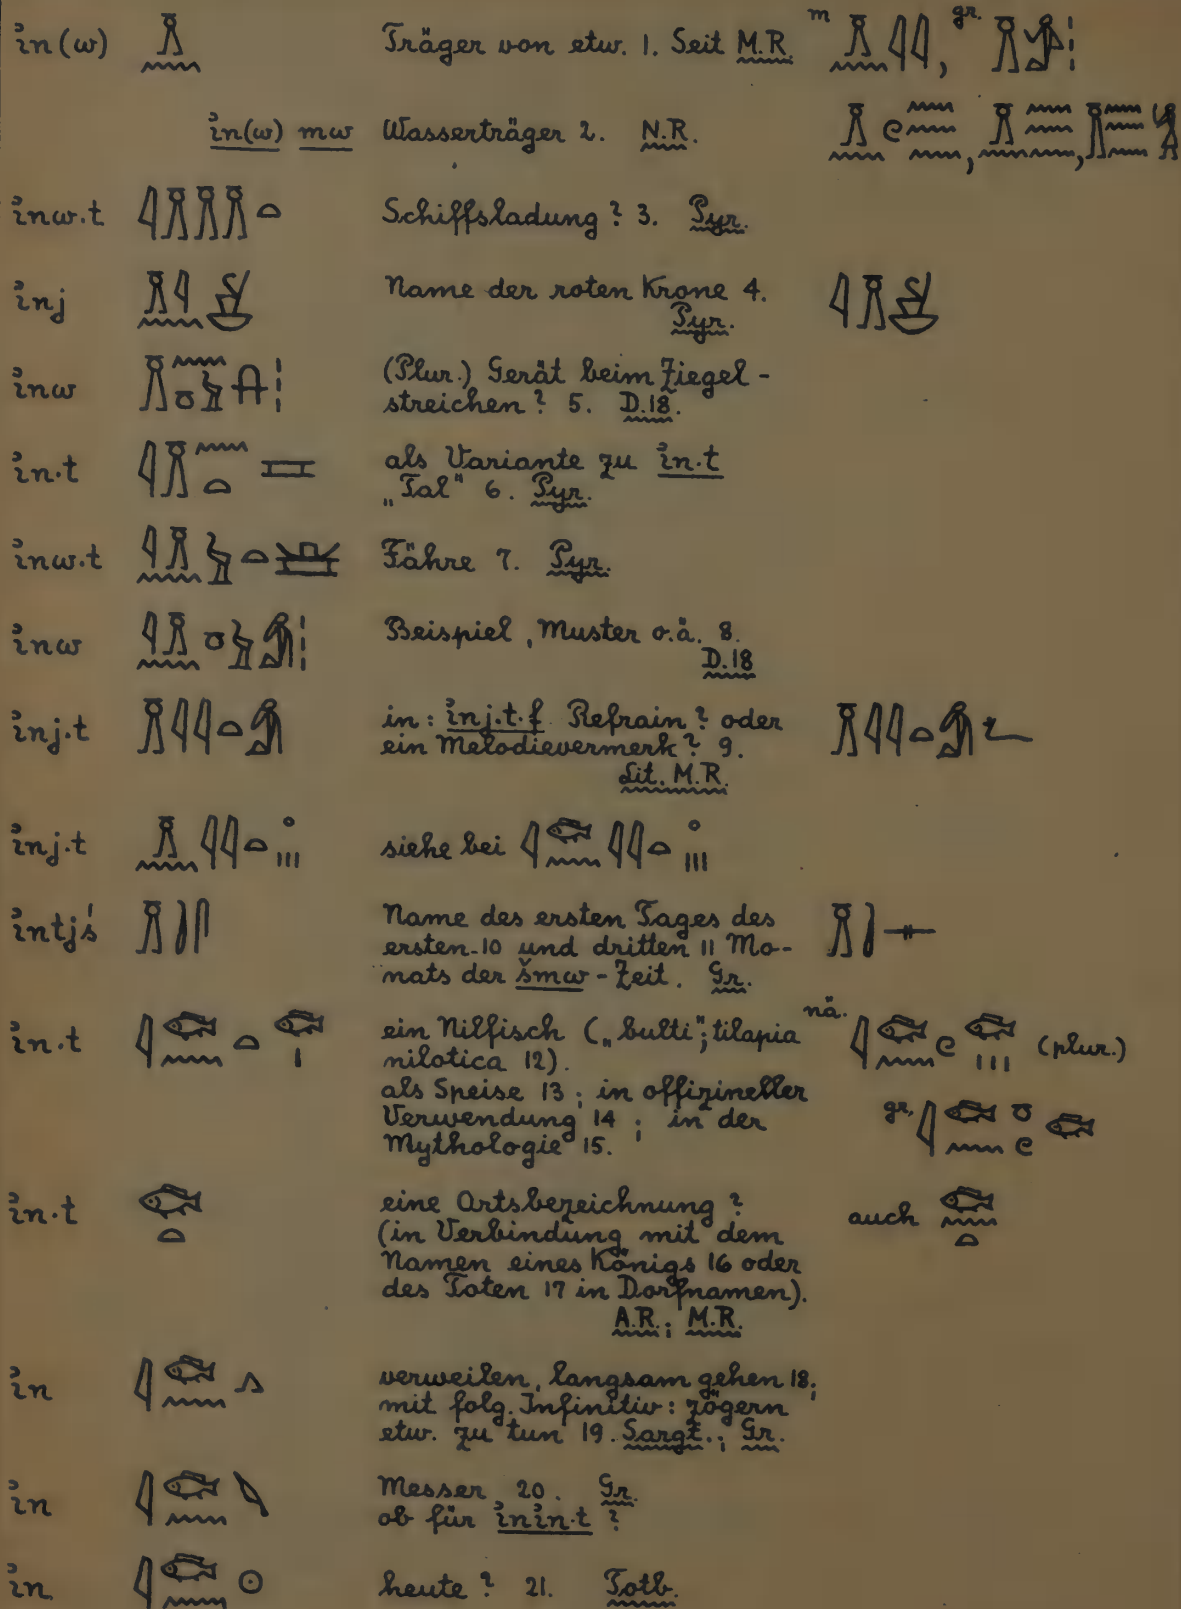 ı͗n(w) Träger von etw. 1. Seit M.R. m , gr.
ı͗n(w) mw Wasserträger 2. N.R. , ,
ı͗nw.t Schiffsladung? 3. Pyr.
ı͗nj Name der roten Krone 4.
Pyr.
ı͗nw (Plur.) Gerät beim Ziegel-
streichen? 5. D.18.
ı͗n.t als Variante zu ı͗n.t
„Tal" 6. Pyr.
ı͗nw.t Fähre 7. Pyr.
ı͗nw Beispiel, Muster o.ä. 8.
D.18
ı͗nj.t in: ı͗nj.t.f Refrain? oder
ein Melodievermerk? 9.
Lit. M.R.
ı͗nj.t siehe bei
ı͗ntjś Name des ersten Tages des
ersten 10 und dritten 11 Mo-
nats der šmw-Zeit. Gr.
ı͗n.t ein Nilfisch („bulti"; tilapia nä. (plur.)
nilotica 12).
als Speise 13; in offizineller
Verwendung 14; in der gr.
Mythologie 15.
ı͗n.t eine Ortsbezeichnung? auch
(in Verbindung mit dem
Namen eines Königs 16 oder
des Toten 17 in Dorfnamen).
A.R.; M.R.
ı͗n verweilen, langsam gehen 18;
mit folg. Infinitiv: zögern
etw. zu tun 19. Sargt.; Gr.
ı͗n Messer 20. Gr.
ob für ı͗nı͗n.t ?
ı͗n heute? 21. Totb.